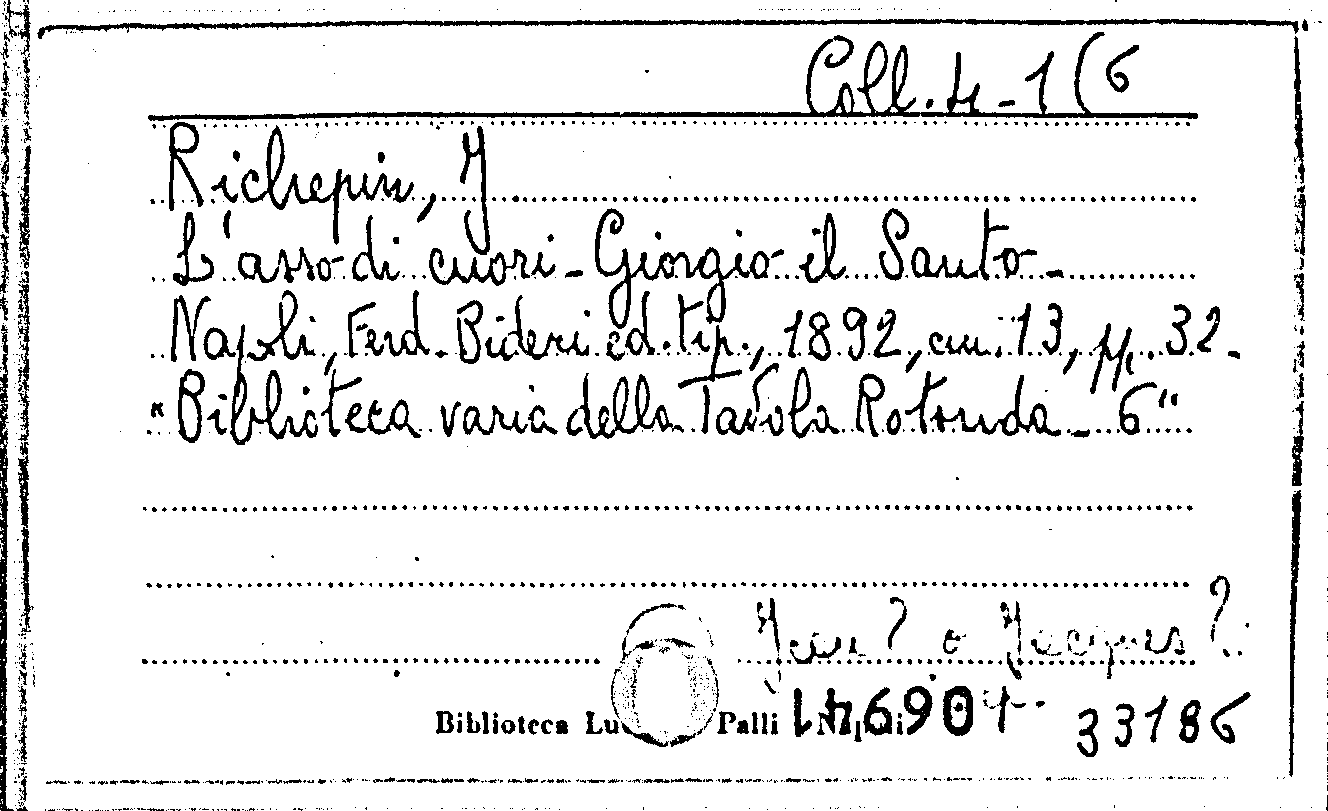 Coll. 4-1 (6
Richepin, J
L'asso di cuori - Giorgio il Santo -
Napoli, Ferd. Bideri ed. tip., 1892, cm. 13, pp. 32 -
"Biblioteca varia della Tavola Rotonda - 6"
Jean? o Jacques?
Biblioteca Lu Palli N
069441
33186